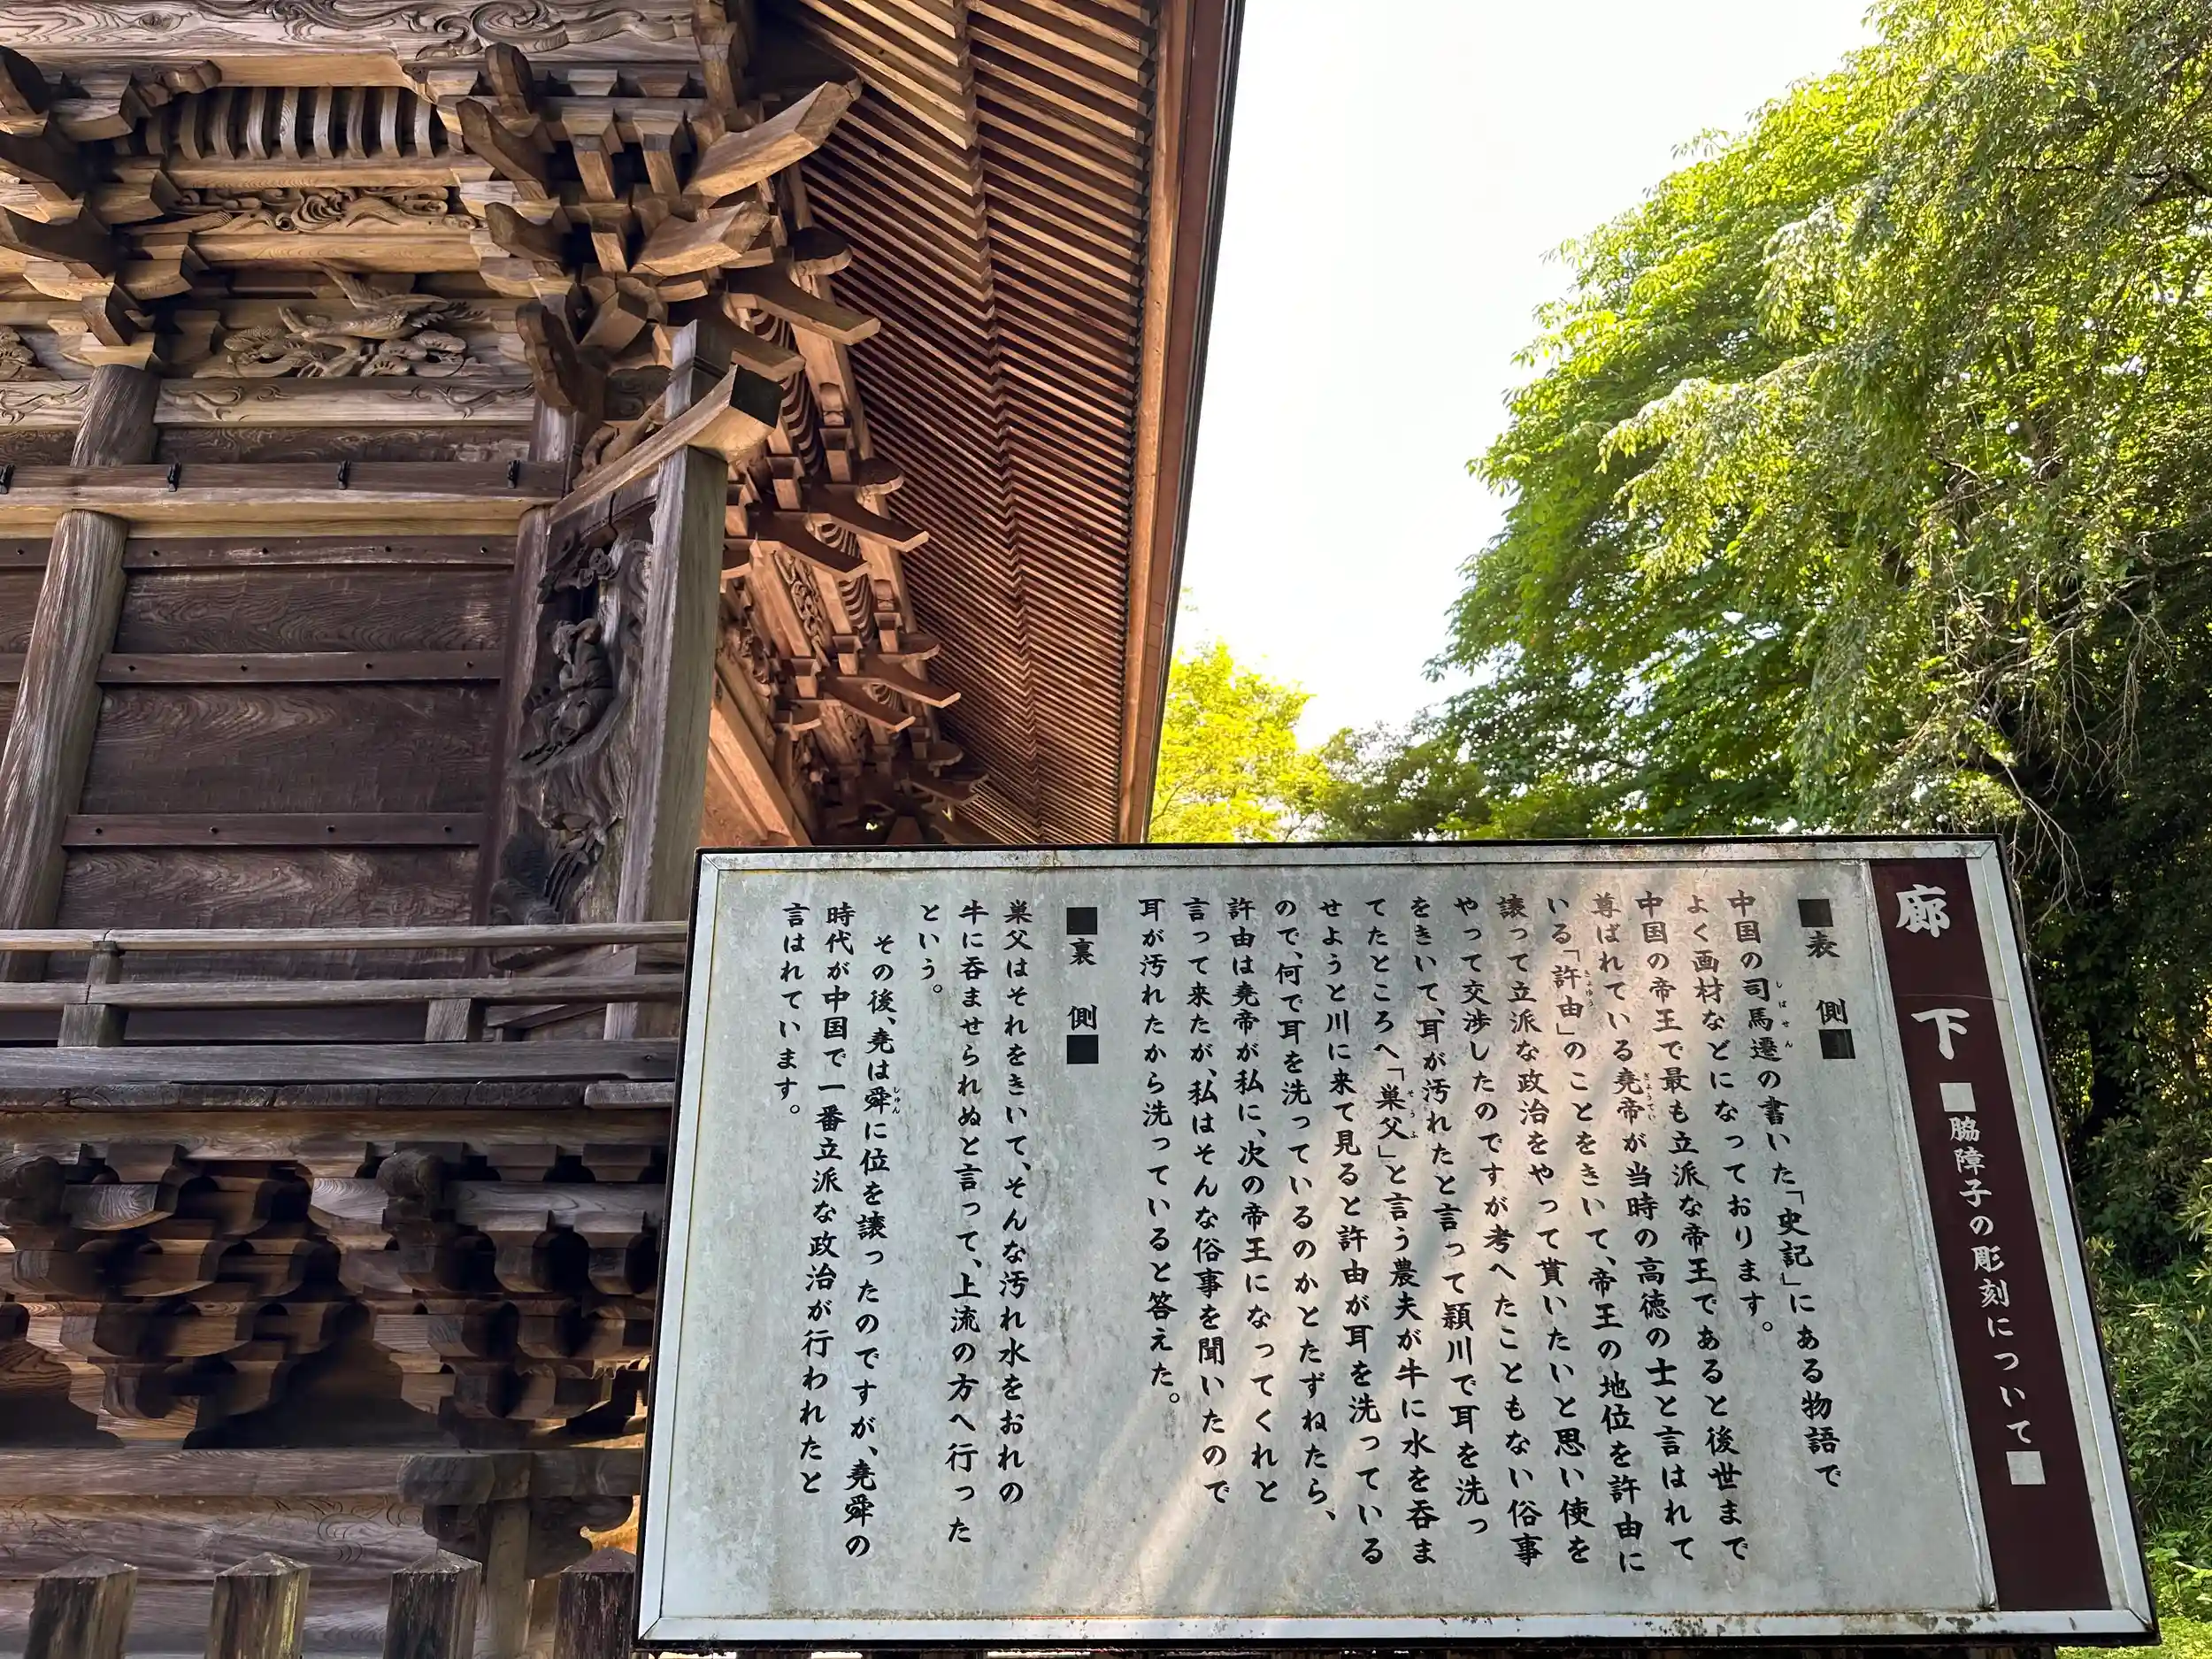 廊下■脇障子の彫刻について■
■表側■
中国の司馬遷の書いた「史記」にある物語で
しばせん
よく画材などになっております。
中国の帝王で最も立派な帝王であると後世まで
尊ばれている堯帝が当時の高徳の士と言はれて
ぎょうてい
いる「許由」のことをきいて、帝王の地位を許由に
きょゆう
譲って立派な政治をやって貰いたいと思い使を
やって交渉したのですが考へたこともない俗事
をきいて、耳が汚れたと言って頴川で耳を洗っ
てたところへ「巣父」と言う農夫が牛に水を呑ま
そうふ
せようと川に来て見ると許由が耳を洗っている
ので、何で耳を洗っているのかとたずねたら、
許由は堯帝が私に、次の帝王になってくれと
言って来たが、私はそんな俗事を聞いたので
耳が汚れたから洗っていると答えた。
■裏側■
巣父はそれをきいて、そんな汚れ水をおれの
牛に呑ませられぬと言って、上流の方へ行った
という。
その後、堯は舜に位を譲ったのですが、堯舜の
しゅん
時代が中国で一番立派な政治が行われたと
言はれています。